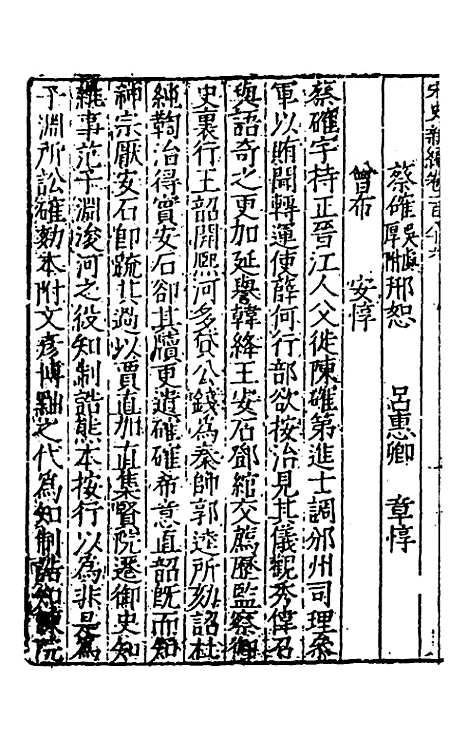 宋史新編卷一百八十六
蔡確吳處厚附 邢恕 呂惠卿 章惇
曾布 安惇
蔡確字持正晉江人父徙陳確第進士調邠州司理參
軍以賄聞轉運使薛向行部欲按治見其儀觀秀偉召
與語奇之更加延譽韓絳王安石鄧綰交薦歷監察御
史裏行王韶開熙河多貸公錢為秦帥郭逵所劾詔杜
純鞫治得實安石卻其牘更遣確確希意直韶既而知
神宗厭安石卽疏其過以賈直加直集賢院遷御史知
雜事范子淵浚河之役知制誥熊本按行以為非是為
子淵所訟確劾本附文彥博黜之代為知制誥知諫院